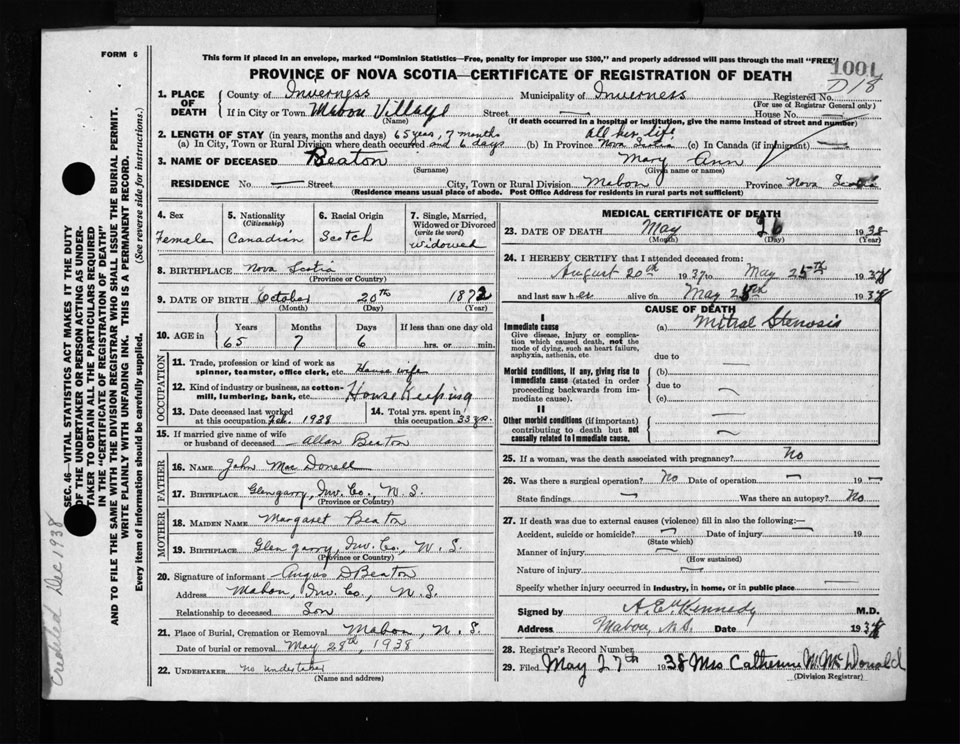 FORM 6
This form if placed in an envelope, marked "Dominion Statistics—Free, penalty for improper use $300," and properly addressed will pass through the mail "FREE"
1001
D18
PROVINCE OF NOVA SCOTIA—CERTIFICATE OF REGISTRATION OF DEATH
1. PLACE OF DEATH
County of Inverness Municipality of Inverness Registered No.
(For use of Registrar General only)
If in City or Town Mabou Village Street — House No. —
(Name) (If death occurred in a hospital or institution, give the name instead of street and number)
2. LENGTH OF STAY (in years, months and days) 65 years, 7 months all her life
(a) In City, Town or Rural Division where death occurred and 6 days (b) In Province Nova Scotia (c) In Canada (if immigrant) —
3. NAME OF DECEASED Beaton Mary Ann
(Surname) (Given name or names)
RESIDENCE No — Street City, Town or Rural Division Mabou Province Nova Scotia
(Residence means usual place of abode. Post Office Address for residents in rural parts not sufficient)
4. Sex
Female
5. Nationality
(Citizenship)
Canadian
6. Racial Origin
Scotch
7. Single, Married, Widowed or Divorced
(write the word)
Widowed
8. BIRTHPLACE Nova Scotia
(Province or Country)
9. DATE OF BIRTH October 20th 1872
(Month) (Day) (Year)
10. AGE in
Years Months Days If less than one day old
65 7 6 hrs. or min.
OCCUPATION
11. Trade, profession or kind of work as
spinner, teamster, office clerk, etc. House wife
12. Kind of industry or business, as cotton-
mill, lumbering, bank, etc. House Keeping
13. Date deceased last worked
at this occupation Feb. 1938
14. Total yrs. spent in
this occupation 33 yrs.
15. If married give name of wife
or husband of deceased Allan Beaton
FATHER
16. NAME John Mac Donell
17. BIRTHPLACE Glengarry, Inv. Co., N. S.
(Province or Country)
MOTHER
18. MAIDEN NAME Margaret Beaton
19. BIRTHPLACE Glengarry, Inv. Co., N. S.
(Province or Country)
20. Signature of informant Angus D Beaton
Address Mabou, Inv. Co., N. S.
Relationship to deceased Son
21. Place of Burial, Cremation or Removal Mabou, N. S.
Date of burial or removal May 28th, 1938
22. UNDERTAKER No undertaker
(Name and address)
MEDICAL CERTIFICATE OF DEATH
23. DATE OF DEATH May 26 1938
(Month) (Day) (Year)
24. I HEREBY CERTIFY that I attended deceased from:
August 20th 1937 to May 25th 1938
and last saw her alive on May 25th 1938
CAUSE OF DEATH
I
Immediate cause (a) Mitral Stenosis
Give disease, injury or complica-
tion which caused death, not the
mode of dying, such as heart failure,
asphyxia, asthenia, etc.
due to —
Morbid conditions, if any, giving rise to
immediate cause (stated in order
proceeding backwards from im-
mediate cause).
(b) —
due to
(c) —
II
Other morbid conditions (if important)
contributing to death but not
causally related to immediate cause.
25. If a woman, was the death associated with pregnancy? No
26. Was there a surgical operation? No Date of operation — 19 —
State findings — Was there an autopsy? No
27. If death was due to external causes (violence) fill in also the following:—
Accident, suicide or homicide? — Date of injury — 19
(State which)
Manner of injury —
(How sustained)
Nature of injury —
Specify whether injury occurred in industry, in home, or in public place —
Signed by A. E. Kennedy M.D.
Address Mabou, N.S. Date 1938
28. Registrar's Record Number
29. Filed May 27th 1938 Mrs Catherine W. McDonald
(Division Registrar)
SEC. 46—VITAL STATISTICS ACT MAKES IT THE DUTY
OF THE UNDERTAKER OR PERSON ACTING AS UNDER-
TAKER TO OBTAIN ALL THE PARTICULARS REQUIRED
IN THE "CERTIFICATE OF REGISTRATION OF DEATH"
AND TO FILE THE SAME WITH THE DIVISION REGISTRAR WHO SHALL ISSUE THE BURIAL PERMIT.
WRITE PLAINLY WITH UNFADING INK. THIS IS A PERMANENT RECORD.
Every item of information should be carefully supplied. (See reverse side for instructions.)
Dec 1938